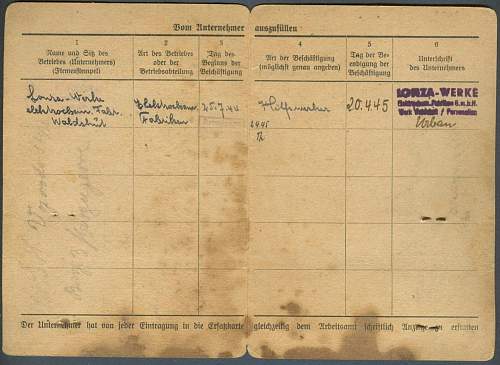 Vom Unternehmer auszufüllen
1
Name und Sitz des
Betriebes (Unternehmers)
(Firmenstempel)
2
Art des Betriebes
oder der
Betriebsabteilung
3
Tag des
Beginns der
Beschäftigung
4
Art der Beschäftigung
(möglichst genau angeben)
5
Tag der Be-
endigung der
Beschäftigung
6
Unterschrift
des Unternehmers
Lonza-Werke
elektrochem. Fabr.
Waldshut
Elektrochem.
Fabriken
Hilfsarbeiter
20.4.45
LONZA-WERKE
Elektrochem. Fabriken G.m.b.H.
Werk Waldshut / Personalbüro
Urban
Der Unternehmer hat von jeder Eintragung in die Ersatzkarte gleichzeitig dem Arbeitsamt schriftlich Anzeige zu erstatten